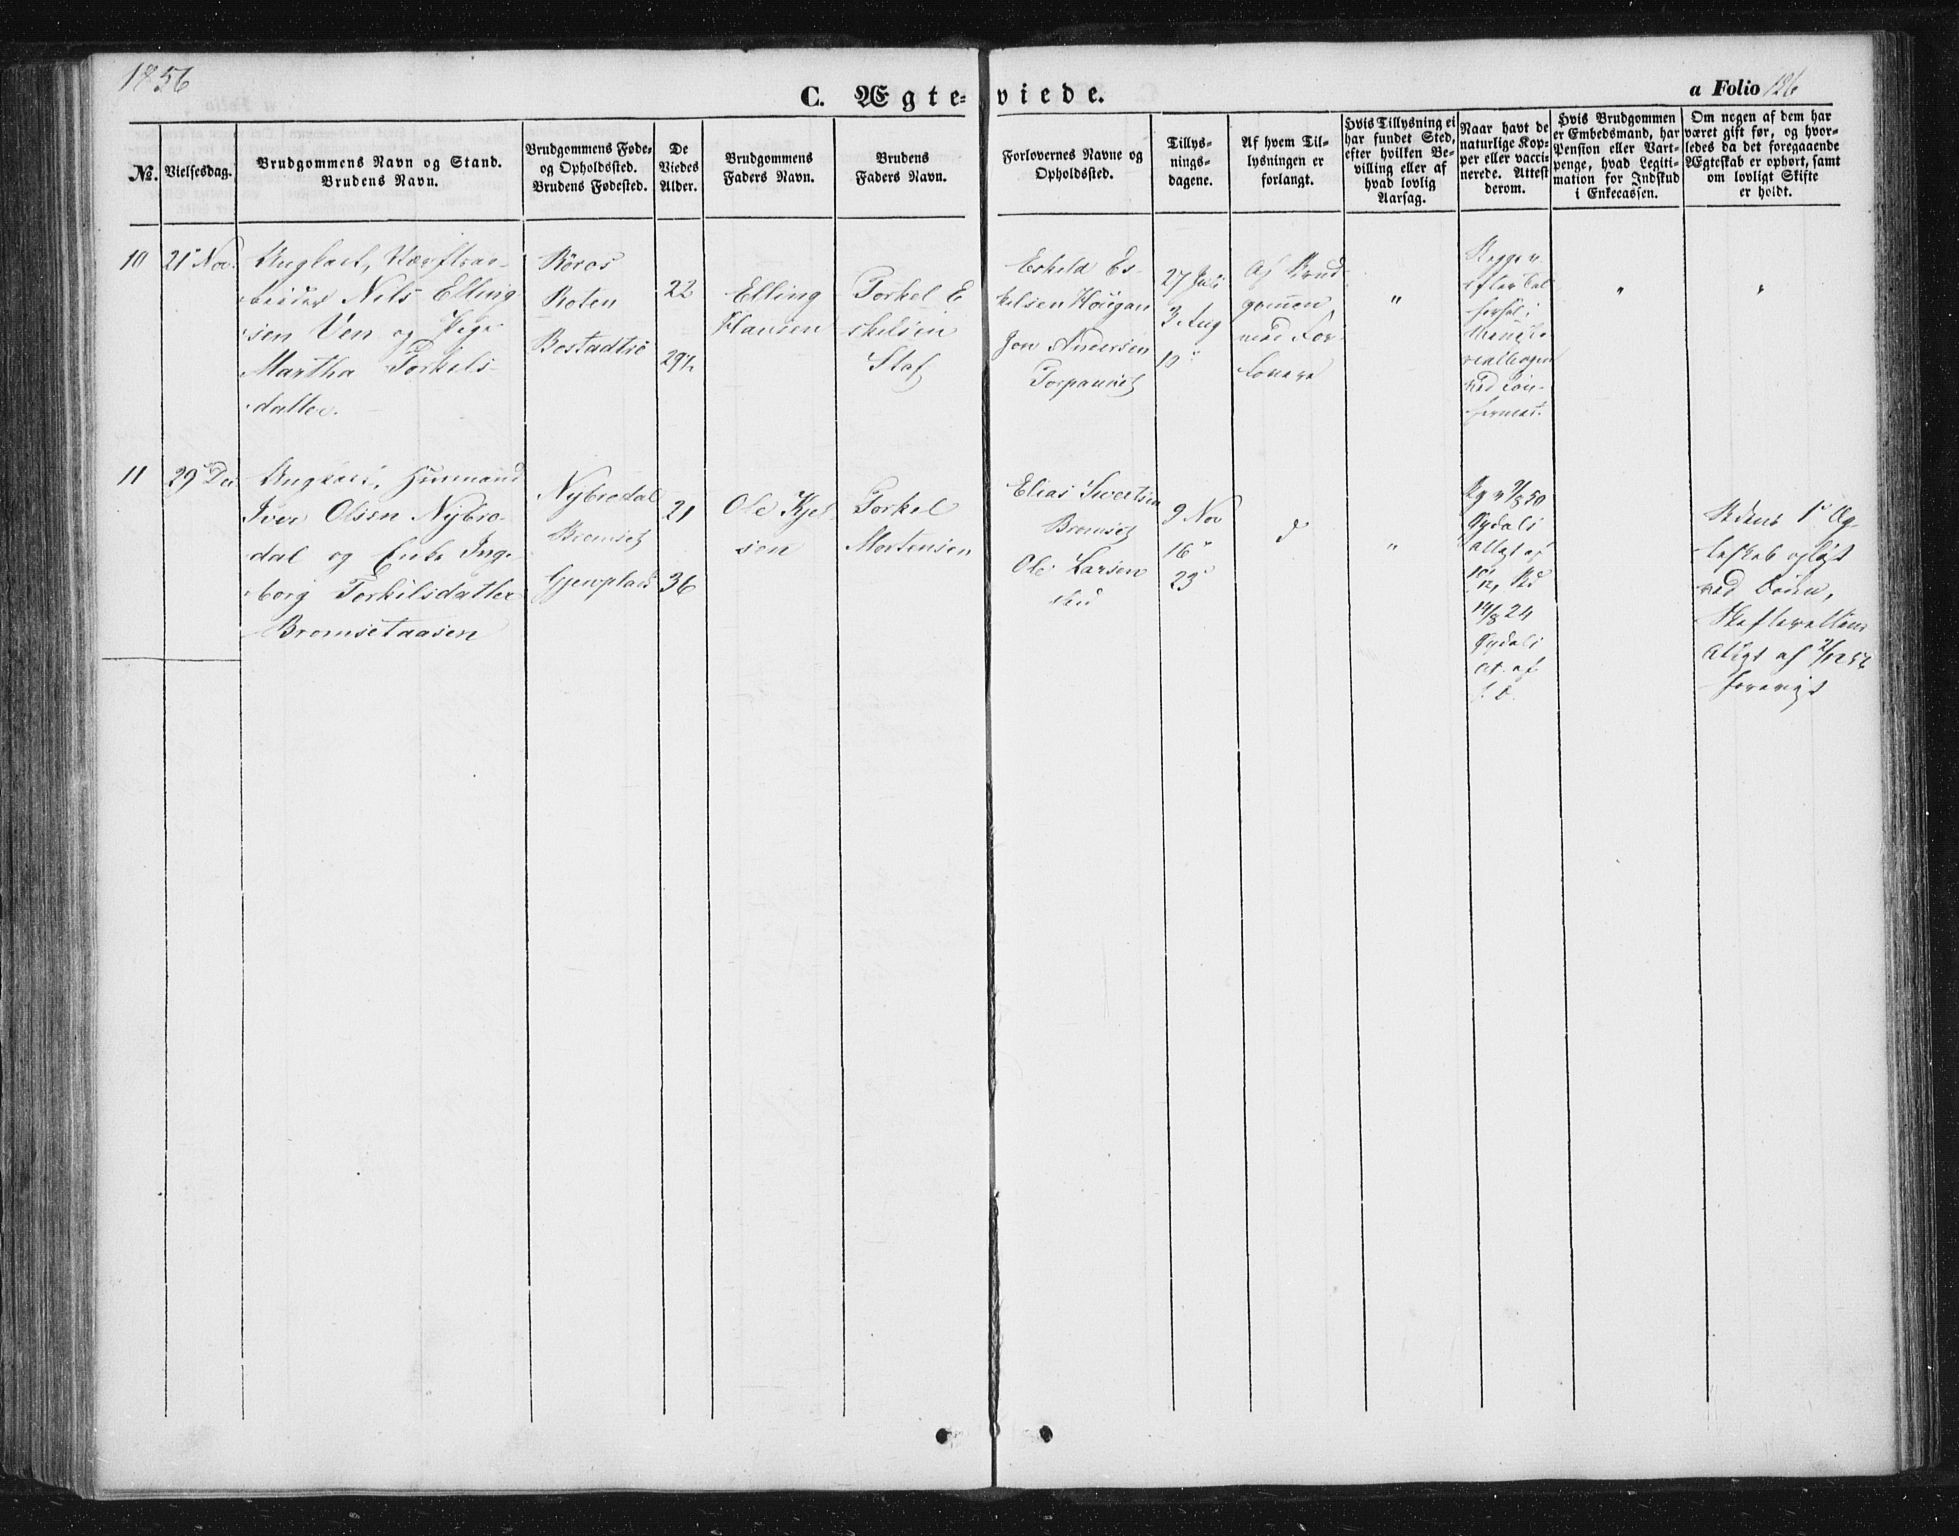 1856
C. Ægte-
viede.
a Folio 126
No.
Vielsesdag.
Brudgommens Navn og Stand.
Brudens Navn.
Brudgommens Føde-
og Opholdssted.
Brudens Fødested.
De
Viedes
Alder.
Brudgommens
Faders Navn.
Brudens
Faders Navn.
Forlovernes Navne og
Opholdssted.
Tillys-
nings-
dagene.
Af hvem Til-
lysningen er
forlangt.
Hvis Tillysning ei
har fundet Sted,
efter hvilken Be-
villing eller af
hvad lovlig
Aarsag.
Naar havt de
naturlige Kop-
per eller vacci-
nerede. Attest
derom.
Hvis Brudgommen
er Embedsmand, har
Pension eller Vart-
penge, hvad Legiti-
mation for Indskud
i Enkecassen.
Om nogen af dem har
været gift før, og hvor-
ledes da det foregaaende
Ægteskab er ophørt, samt
om lovligt Skifte
er holdt.
10
21 Nov.
Ungkarl,
beider Nils Elling
sen Ven og Pige
Martha Torkels-
datter.
Röros
Roten
Bostadtrö
22
29½
Elling
Hansen
Torkel E
skelsen
Staf
Eskeld Es-
kelsen Hougan
Jon Andersen
27 Juli
3 Aug
10
Af Brud
gommen
med For-
lovere
"
Begge v
"
"
11
29 De
Ungkarl, Huusmand
Iver Olsen Nybro-
dal og Enke Inge
borg Torkilsdatter
Bromsetaasen
Nybrodal
Bromset
Gjenplads
21
36
Ole Kjel
sen
Torkel
Mortensen
Elias Sivertsen
Bromset
Ole Larsen
9 Nov
16
23
d
"
50
Attest af
14/8 24
At. af
Brudens 1' Æg
teskab opløst
ved Döden,
Skifterettens
Attest af
forevist